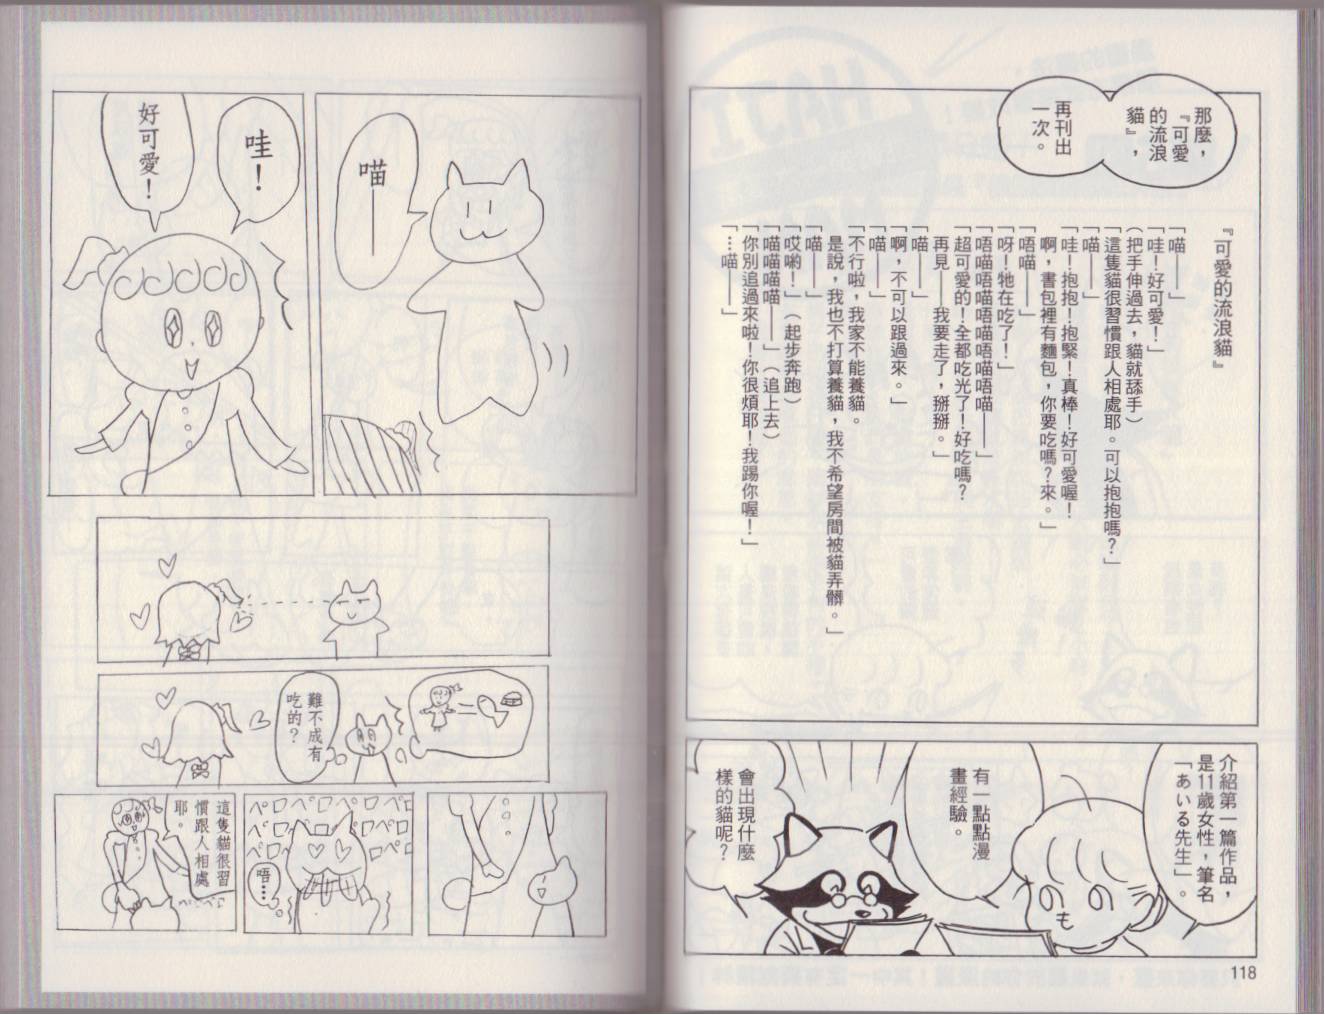 那麼，
『可愛
的流浪
貓』，
再刊出
一次。
『可愛的流浪貓』
「喵——」
「哇！好可愛！」
（把手伸過去，貓就舔手）
「這隻貓很習慣跟人相處耶。可以抱抱嗎？」
「喵——」
「哇！抱抱！抱緊！真棒！好可愛喔！
啊，書包裡有麵包，你要吃嗎？來。」
「唔喵——」
「呀！牠在吃了！」
「唔喵唔喵唔喵唔喵唔喵——」
「超可愛的！全都吃光了！好吃嗎？
再見——我要走了，掰掰。」
「喵——」
「啊，不可以跟過來。」
「喵——」
「不行啦，我家不能養貓。
是說，我也不打算養貓，我不希望房間被貓弄髒。」
「喵——」
「哎喲！」（起步奔跑）
「喵喵喵喵——」（追上去）
「你別追過來啦！你很煩耶！我踢你喔！」
「…喵——」
介紹第一篇作品，
是11歲女性，筆名
「あいる先生」。
有一點點漫
畫經驗。
會出現什麼
樣的貓呢？
118
喵——
哇！
好可愛！
難不成有
吃的？
ペロペロペロペロ
唔…
這隻貓很習
慣跟人相處
耶。